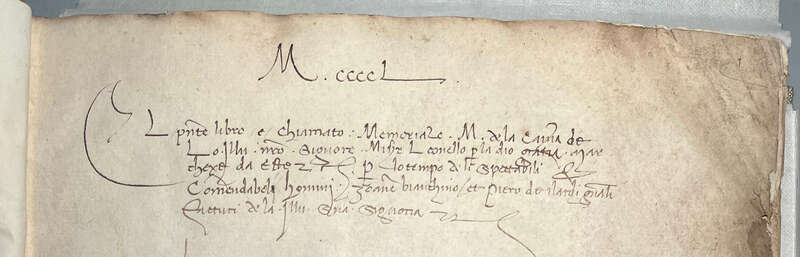 M . ccccL .
El pnte libro e chiamato . Memoriale . M . de la Cama de
Lo . Illu . nro . Signore . Misre Leonello p la dio gratia . Mar
chexe da Este &c . P lo tempo de li Spectabili &
Comendabeli homini . Zoane bianchino / et Piero de
Facturi de la . Illu . Sua Signoria